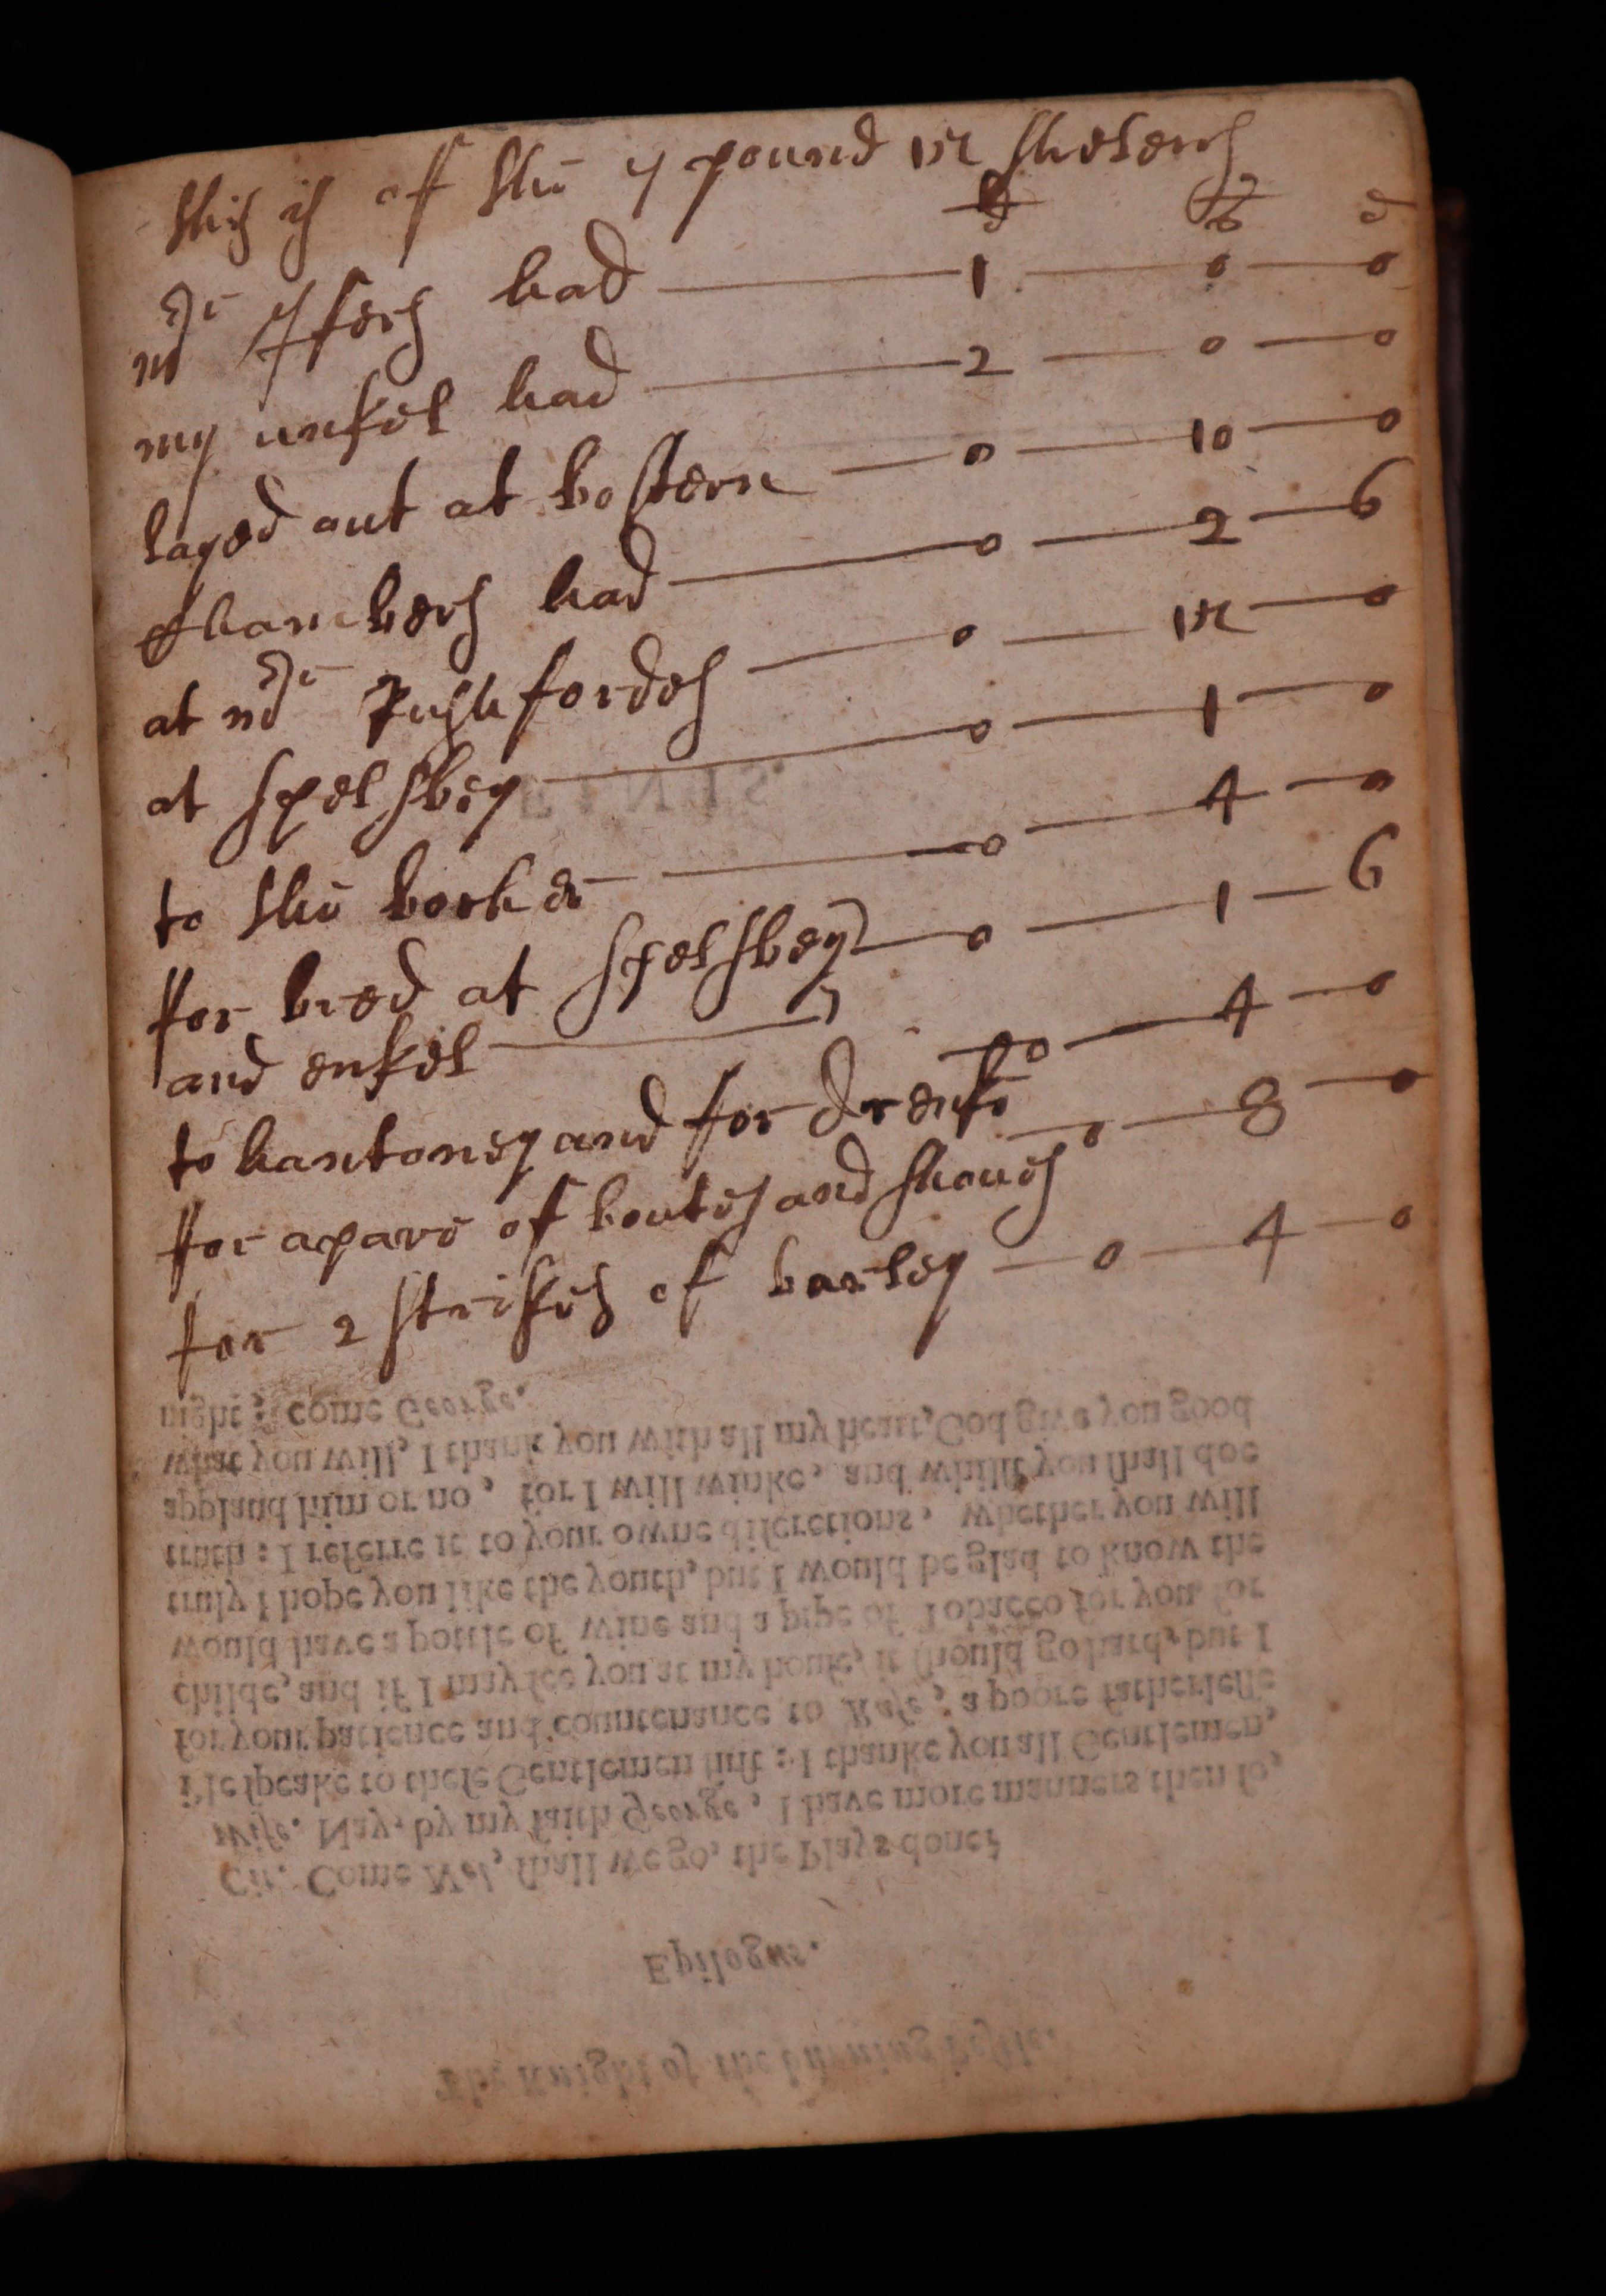 this is of the 7 pound 15 shelens
s d
mr had — 1 — 0 — 0
my unkel had — 2 — 0 — 0
layed out at bostern — 0 — 10 — 0
Chambers had — 0 — 2 — 6
at mr Rushfordes — 0 — 15 — 0
at spelsbey — 0 — 1 — 0
to the bocher — 0 — 4 — 0
for bred at spelsbey — 0 — 1 — 6
and enkel
to hantoney and for drenke — 0 — 4 — 0
for a pare of boutes and shoues 0 — 8 — 0
for 2 strikes of barley — 0 — 4 — 0
The Knight of the burning Pestle.
Epilogus.
Cit. Come Nel, shall we go, the Plays done?
Wife. Nay, by my faith George, I have more manners then so,
i'le speake to these Gentlemen first : I thanke you all Gentlemen,
for your patience and countenance to Rafe, a poore fatherlesse
childe, and if I may see you at my house, it should go hard, but I
would have a pottle of wine and a pipe of Tobacco for you, for
truly I hope you like the youth, but I would be glad to know the
truth : I referre it to your owne discretions, whether you will
applaud him or no, for I will winke, and whilst you shall doe
what you will, I thank you with all my heart, God give you good
night ; come George.
FINIS.